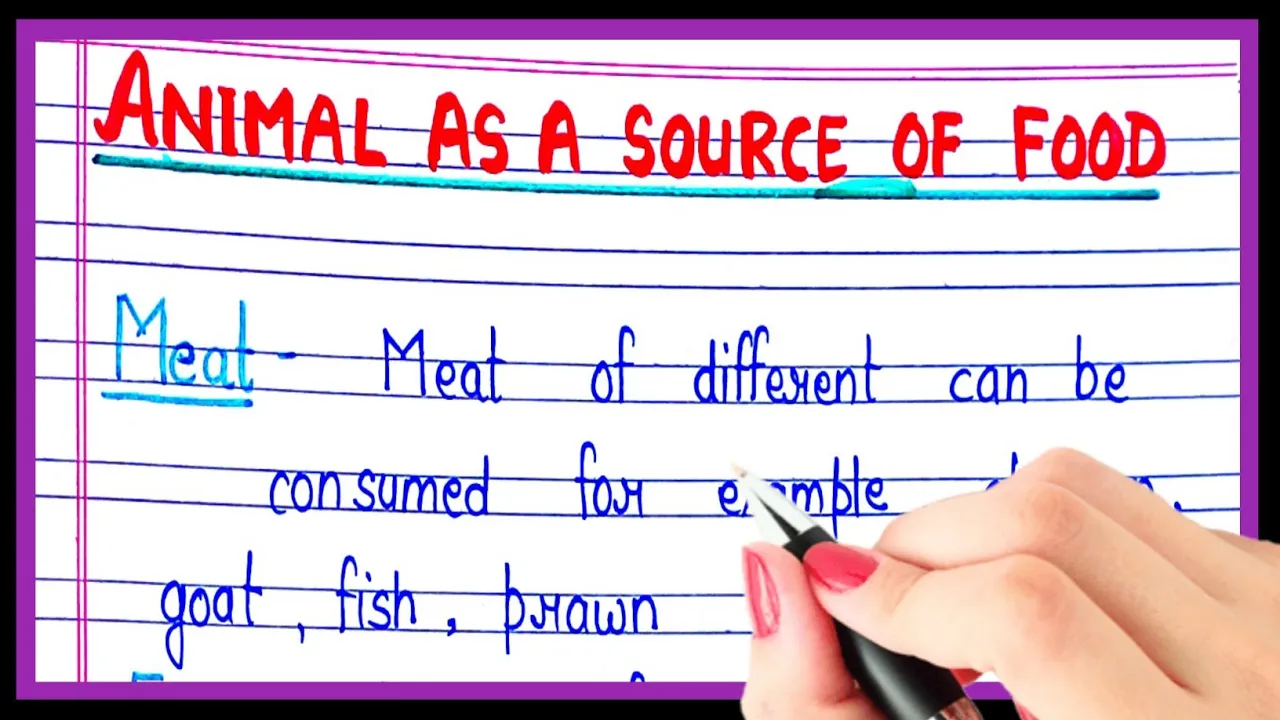 ANIMAL AS A SOURCE OF FOOD
Meat - Meat of different can be
consumed for example
goat, fish, prawn